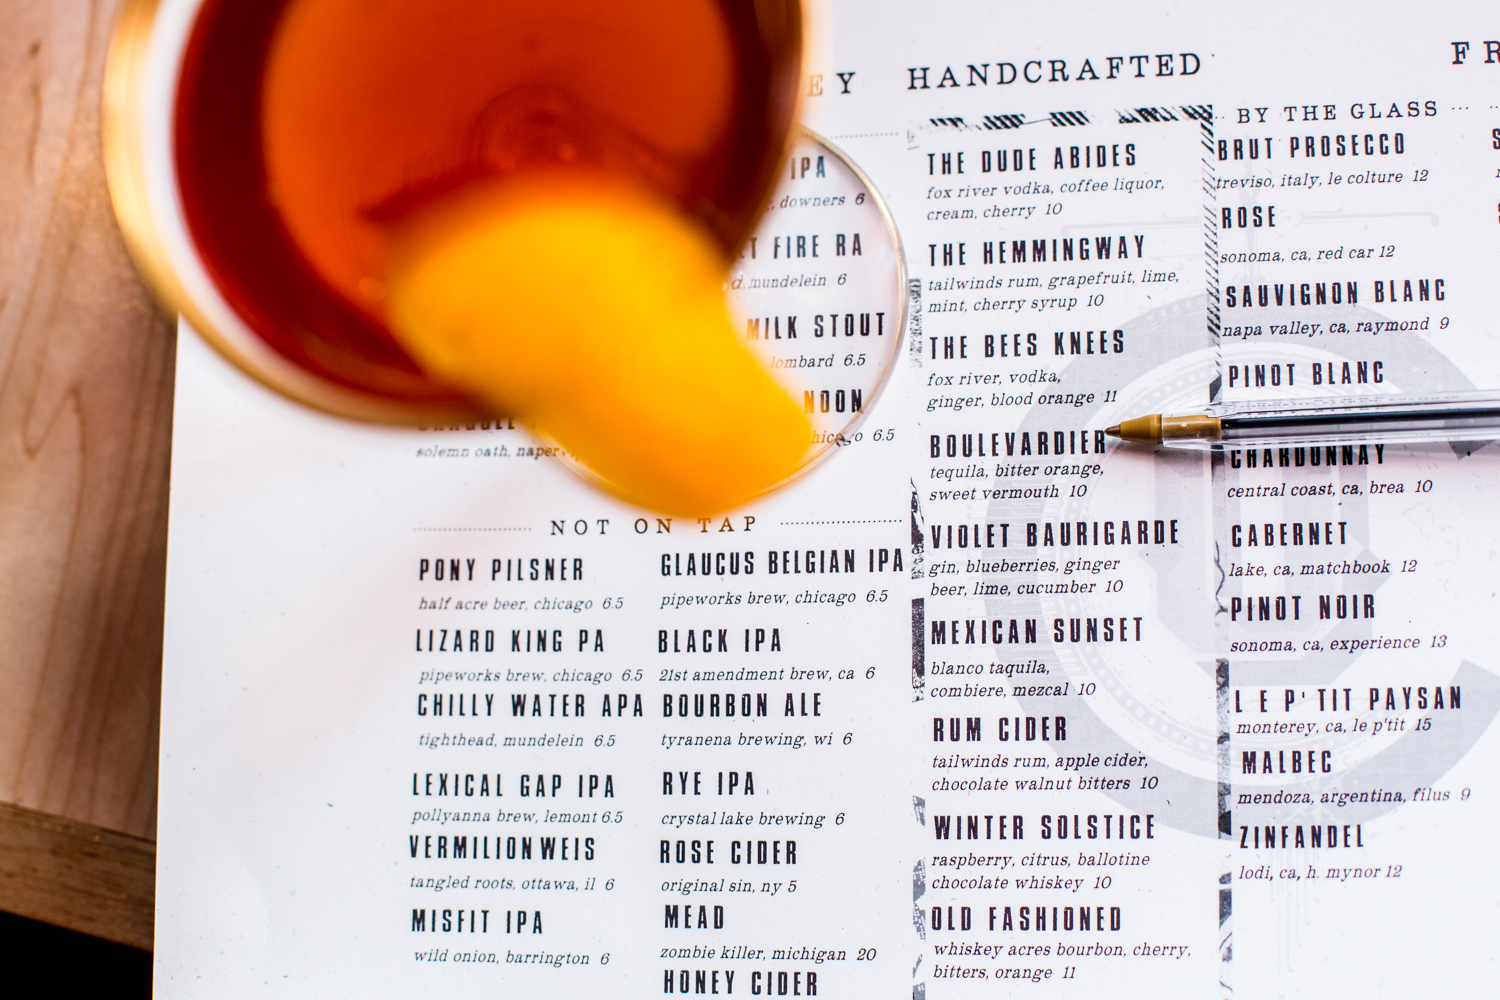 EY
IPA
downers 6
FIRE RA
mundelein 6
MILK STOUT
lombard 6.5
NOON
6.5
solemn oath,
NOT ON TAP
PONY PILSNER
half acre beer, chicago 6.5
LIZARD KING PA
pipeworks brew, chicago 6.5
CHILLY WATER APA
tighthead, mundelein 6.5
LEXICAL GAP IPA
pollyanna brew, lemont 6.5
VERMILION WEIS
tangled roots, ottawa, il 6
MISFIT IPA
wild onion, barrington 6
GLAUCUS BELGIAN IPA
pipeworks brew, chicago 6.5
BLACK IPA
21st amendment brew, ca 6
BOURBON ALE
tyranena brewing, wi 6
RYE IPA
crystal lake brewing 6
ROSE CIDER
original sin, ny 5
MEAD
zombie killer, michigan 20
HONEY CIDER
HANDCRAFTED
THE DUDE ABIDES
fox river vodka, coffee liquor,
cream, cherry 10
THE HEMMINGWAY
tailwinds rum, grapefruit, lime,
mint, cherry syrup 10
THE BEES KNEES
fox river, vodka,
ginger, blood orange 11
BOULEVARDIER
tequila, bitter orange,
sweet vermouth 10
VIOLET BAURIGARDE
gin, blueberries, ginger
beer, lime, cucumber 10
MEXICAN SUNSET
blanco taquila,
combiere, mezcal 10
RUM CIDER
tailwinds rum, apple cider,
chocolate walnut bitters 10
WINTER SOLSTICE
raspberry, citrus, ballotine
chocolate whiskey 10
OLD FASHIONED
whiskey acres bourbon, cherry,
bitters, orange 11
FR
BY THE GLASS
BRUT PROSECCO
treviso, italy, le colture 12
ROSE
sonoma, ca, red car 12
SAUVIGNON BLANC
napa valley, ca, raymond 9
PINOT BLANC
CHARDONNAY
central coast, ca, brea 10
CABERNET
lake, ca, matchbook 12
PINOT NOIR
sonoma, ca, experience 13
LE P'TIT PAYSAN
monterey, ca, le p'tit 15
MALBEC
mendoza, argentina, filus 9
ZINFANDEL
lodi, ca, h. mynor 12